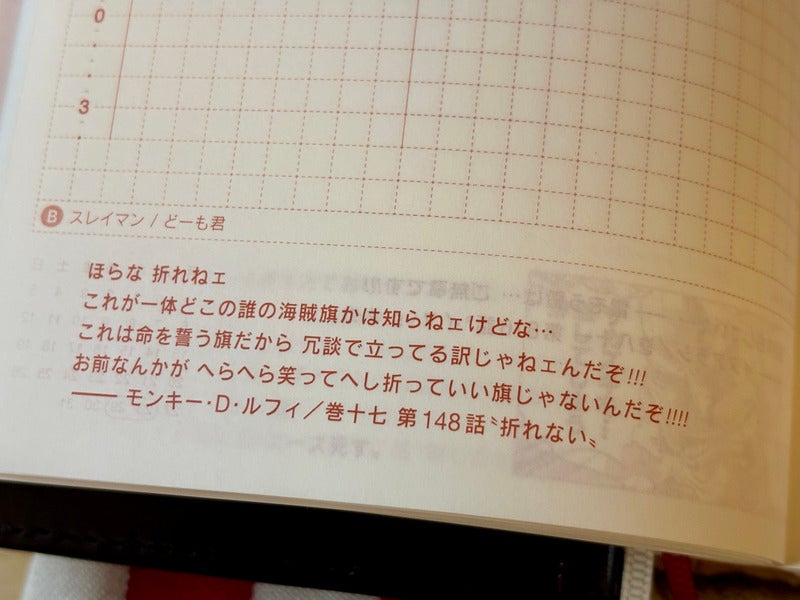 0
3
B スレイマン / どーも君
ほらな 折れねェ
これが一体どこの誰の海賊旗かは知らねェけどな…
これは命を誓う旗だから 冗談で立ってる訳じゃねェんだぞ!!!
お前なんかが へらへら笑ってへし折っていい旗じゃないんだぞ!!!!
―― モンキー・D・ルフィ／巻十七 第148話〝折れない〟